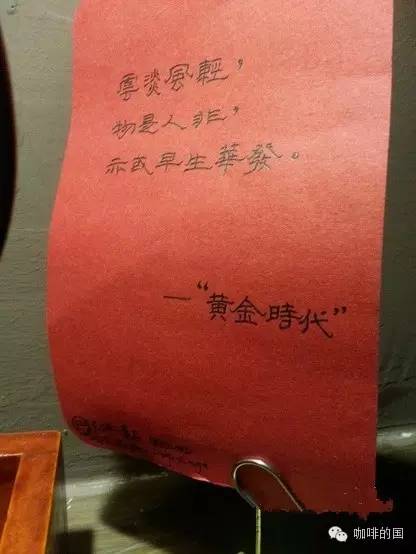 雲淡風輕，
物是人非，
亦或早生華發。
—“黄金時代”
咖啡的国